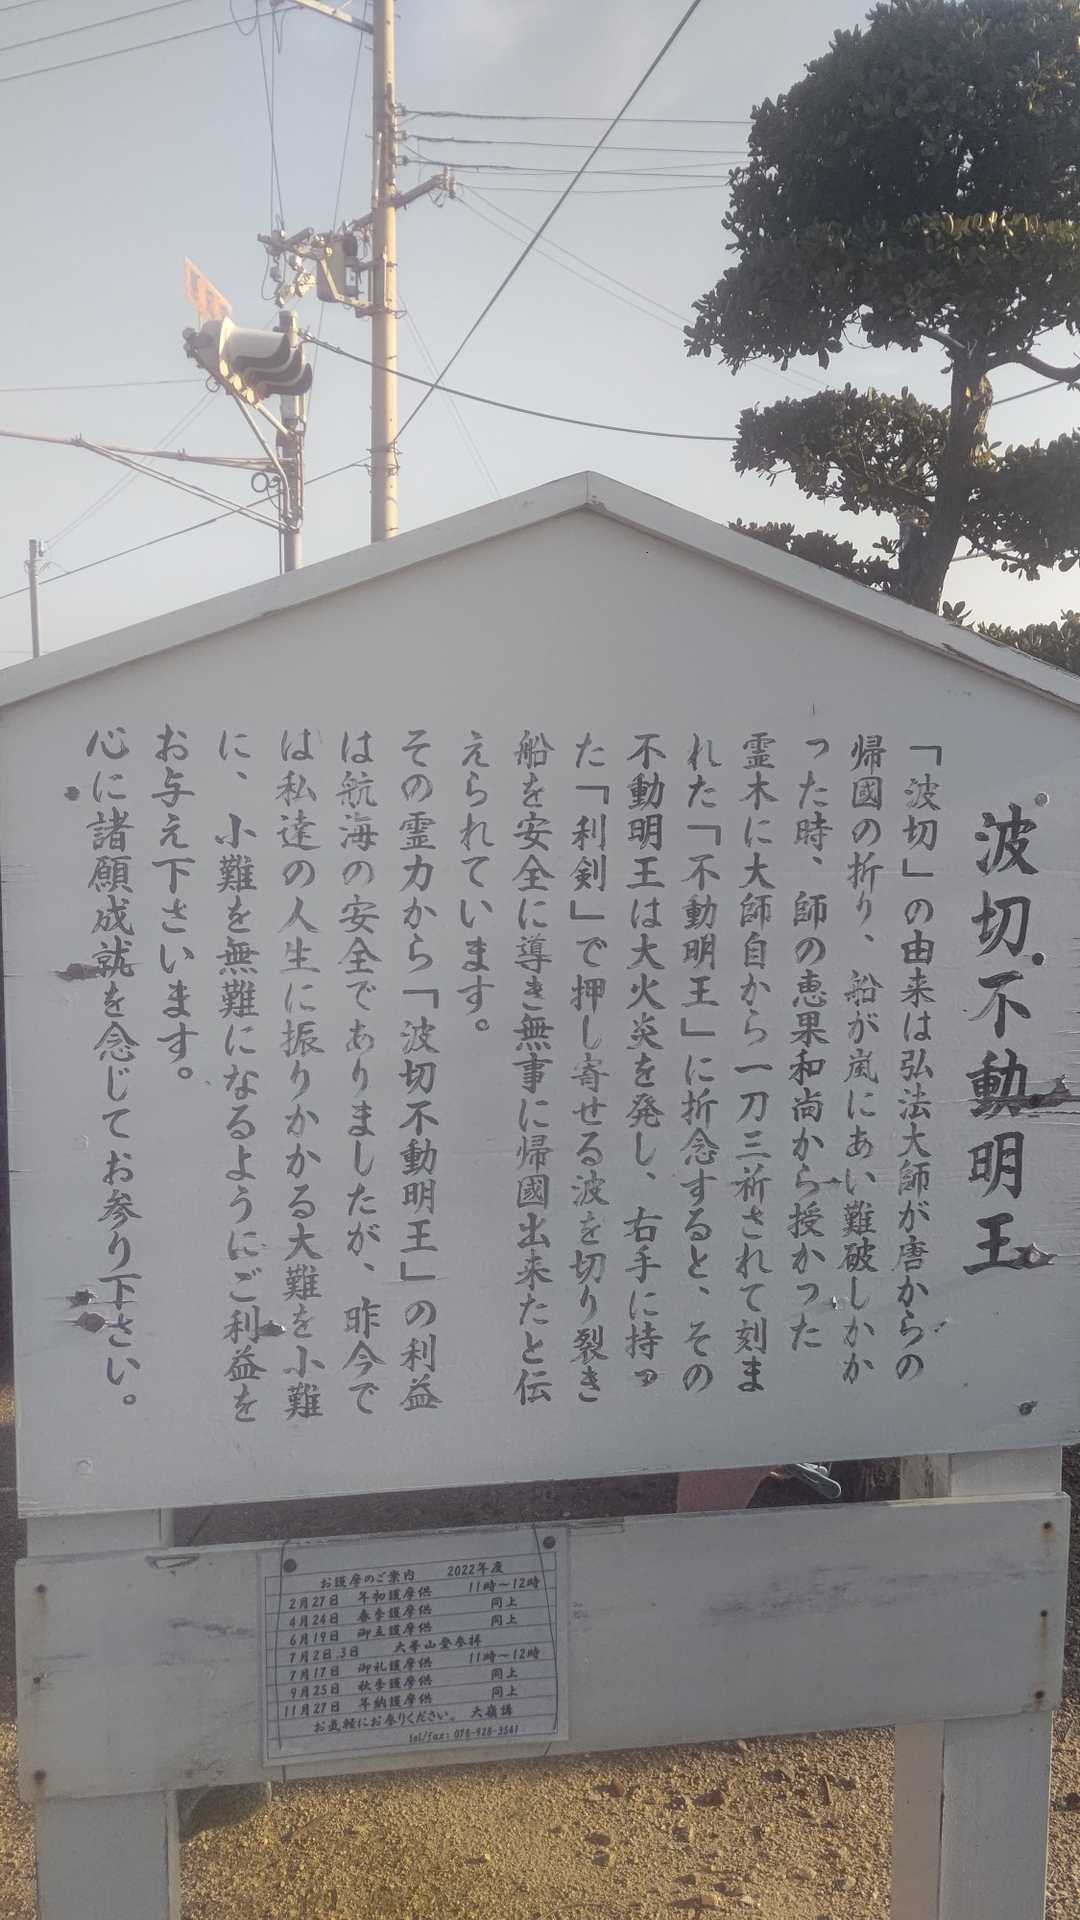 波切不動明王
「波切」の由来は弘法大師が唐からの
帰國の折り、船が嵐にあい難破しかか
った時、師の恵果和尚から授かった
霊木に大師自から一刀三祈されて刻ま
れた「不動明王」に折念すると、その
不動明王は大火炎を発し、右手に持っ
た「利剣」で押し寄せる波を切り裂き
船を安全に導き無事に帰國出来たと伝
えられています。
その霊力から「波切不動明王」の利益
は航海の安全でありましたが、昨今で
は私達の人生に振りかかる大難を小難
に、小難を無難になるようにご利益を
お与え下さいます。
心に諸願成就を念じてお参り下さい。
お護摩のご案内 2022年度
2月27日 年初護摩供 11時〜12時
4月24日 春季護摩供 同上
6月19日 御立護摩供 同上
7月2日.3日 大峯山登参拝
7月17日 御礼護摩供 11時〜12時
9月25日 秋季護摩供 同上
11月27日 年納護摩供 同上
お気軽にお参りください。 大嶺講
tel/fax: 078-928-3541